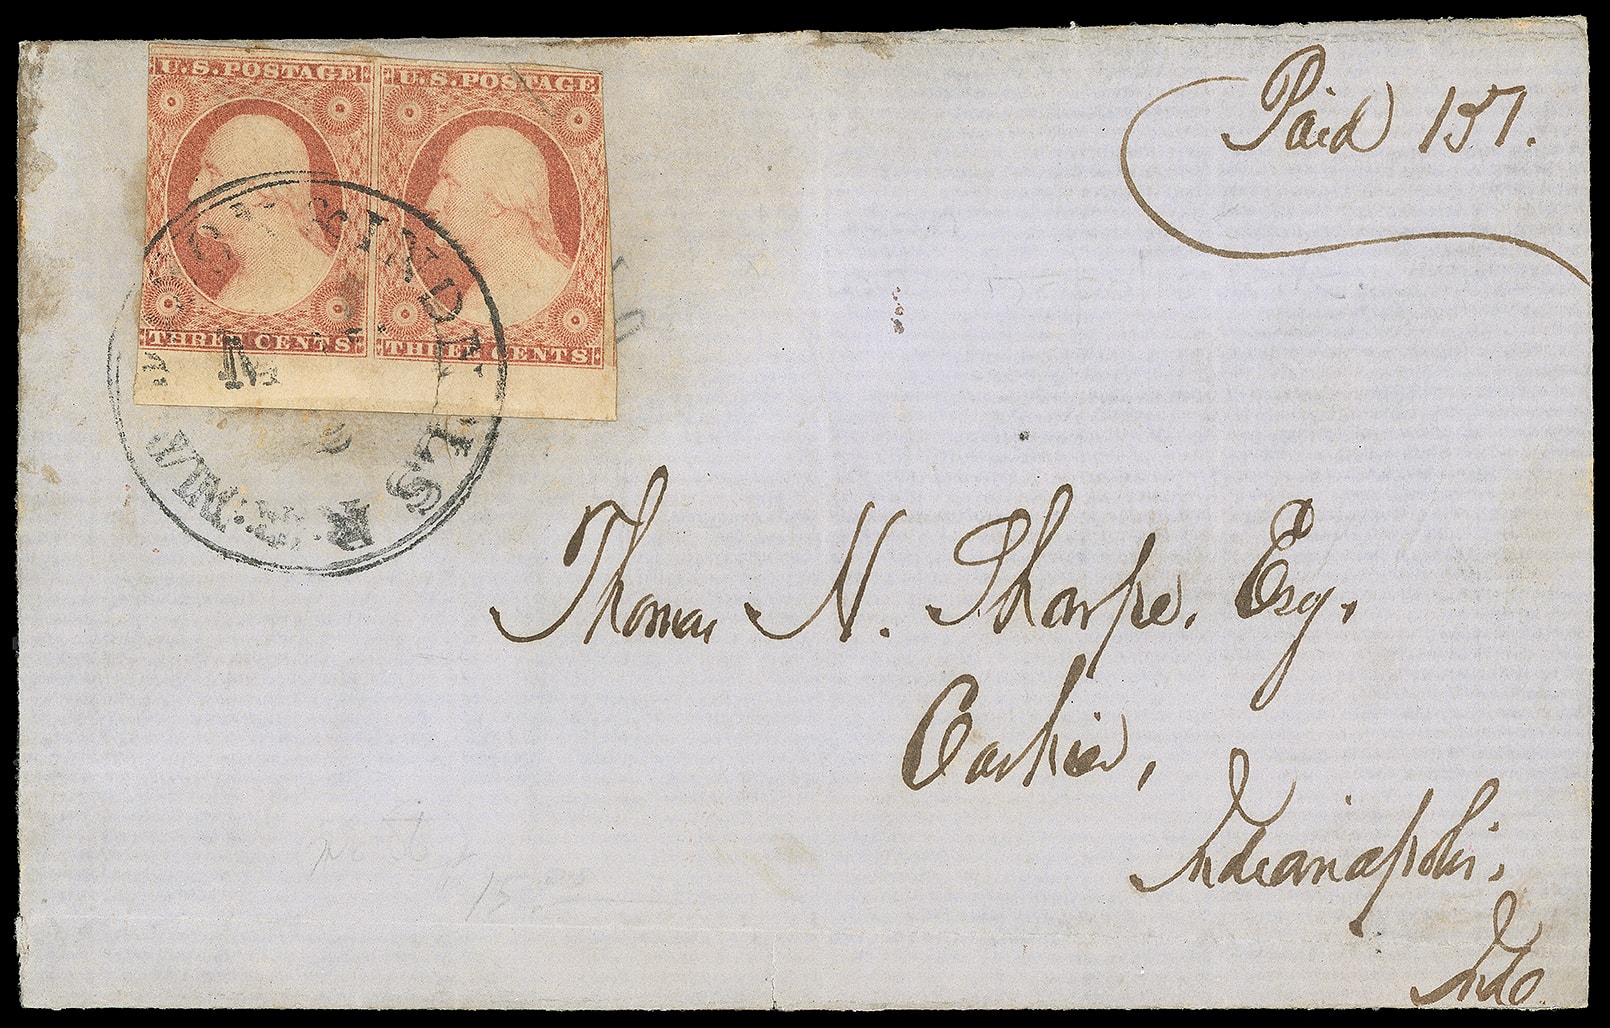 U.S. POSTAGE U.S. POSTAGE
THREE CENTS THREE CENTS
Paid 157.
Thomas N. Sharpe, Esq,
Cashier,
Indianapolis,
Inda